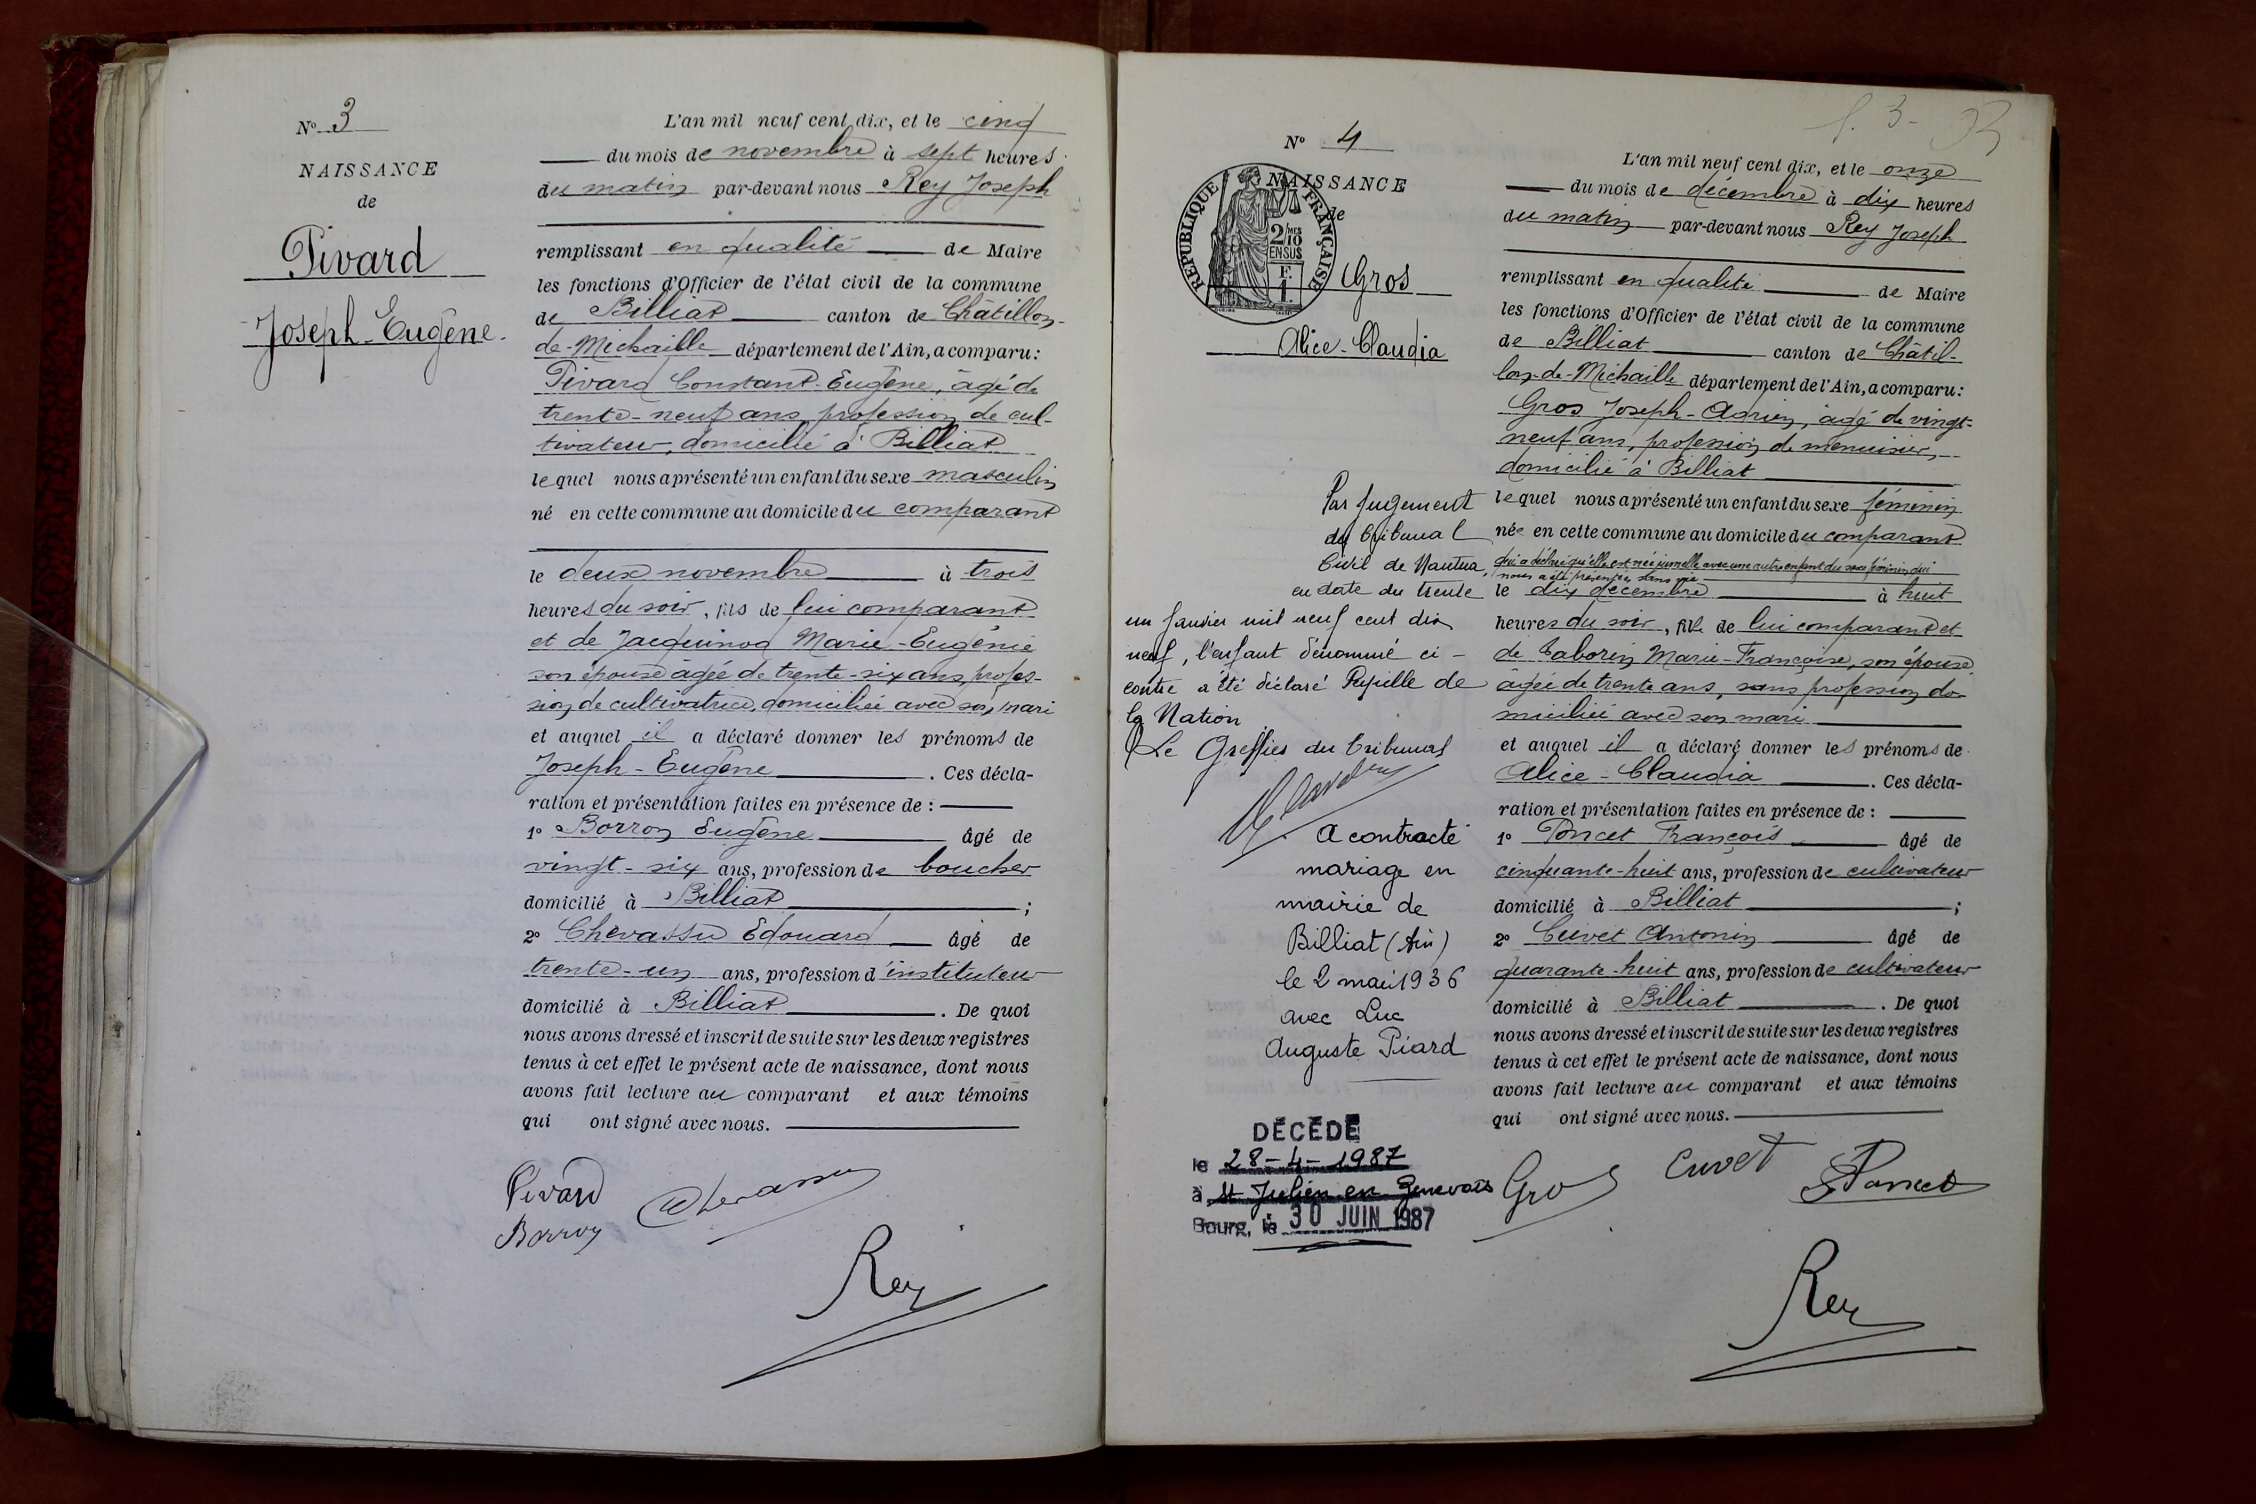 N° 3
NAISSANCE
de
Pivard
Joseph-Eugène.
L'an mil neuf cent dix, et le cinq
du mois de novembre à sept heures
du matin par-devant nous Rey Joseph
remplissant en qualité de Maire
les fonctions d'Officier de l'état civil de la commune
de Billiat canton de Châtillon-
de-Michaille département de l'Ain, a comparu:
Pivard Constant-Eugène, âgé de
trente-neuf ans, profession de cul-
tivateur, domicilié à Billiat
lequel nous a présenté un enfant du sexe masculin
né en cette commune au domicile du comparant
le deux novembre à trois
heures du soir, fils de lui comparant
et de Jacquinod Marie-Eugénie
son épouse âgée de trente-six ans, profes-
sion de cultivatrice, domiciliée avec son mari
et auquel il a déclaré donner les prénoms de
Joseph-Eugène. Ces décla-
ration et présentation faites en présence de :
1° Borron Eugène âgé de
vingt-six ans, profession de boucher
domicilié à Billiat ;
2° Chevassu Edouard âgé de
trente-un ans, profession d'instituteur
domicilié à Billiat. De quoi
nous avons dressé et inscrit de suite sur les deux registres
tenus à cet effet le présent acte de naissance, dont nous
avons fait lecture au comparant et aux témoins
qui ont signé avec nous.
Pivard Chevassu
Borron
Rey
N° 4
NAISSANCE
de
REPUBLIQUE FRANÇAISE
2/10 MES
EN SUS
F.
1.
Gros
Alice-Claudia
Par jugement
du tribunal
Civil de Nantua,
en date du trente
un janvier mil neuf cent dix
neuf, l'enfant dénommé ci-
contre a été déclaré Pupille de
la Nation
Le Greffier du tribunal
A contracté
mariage en
mairie de
Billiat (Ain)
le 2 mai 1936
avec Luc
Auguste Piard
DÉCÉDÉ
le 28-4-1987
à St Julien en Genevois
Bourg, le 30 JUIN 1987
L'an mil neuf cent dix, et le onze
du mois de décembre à dix heures
du matin par-devant nous Rey Joseph
remplissant en qualité de Maire
les fonctions d'Officier de l'état civil de la commune
de Billiat canton de Châtil-
lon-de-Michaille département de l'Ain, a comparu:
Gros Joseph-Adrien, âgé de vingt-
neuf ans, profession de menuisier,
domicilié à Billiat
lequel nous a présenté un enfant du sexe féminin
née en cette commune au domicile du comparant
qui a déclaré qu'elle est née jumelle avec une autre enfant du sexe féminin qui
nous a été présentée sans vie
le dix décembre à huit
heures du soir, fille de lui comparant et
de Taborin Marie-Françoise, son épouse
âgée de trente ans, sans profession do-
miciliée avec son mari
et auquel il a déclaré donner les prénoms de
Alice-Claudia. Ces décla-
ration et présentation faites en présence de :
1° Poncet François âgé de
cinquante-huit ans, profession de cultivateur
domicilié à Billiat ;
2° Cuvet Antonin âgé de
quarante-huit ans, profession de cultivateur
domicilié à Billiat. De quoi
nous avons dressé et inscrit de suite sur les deux registres
tenus à cet effet le présent acte de naissance, dont nous
avons fait lecture au comparant et aux témoins
qui ont signé avec nous.
Gros Cuvet Poncet
Rey